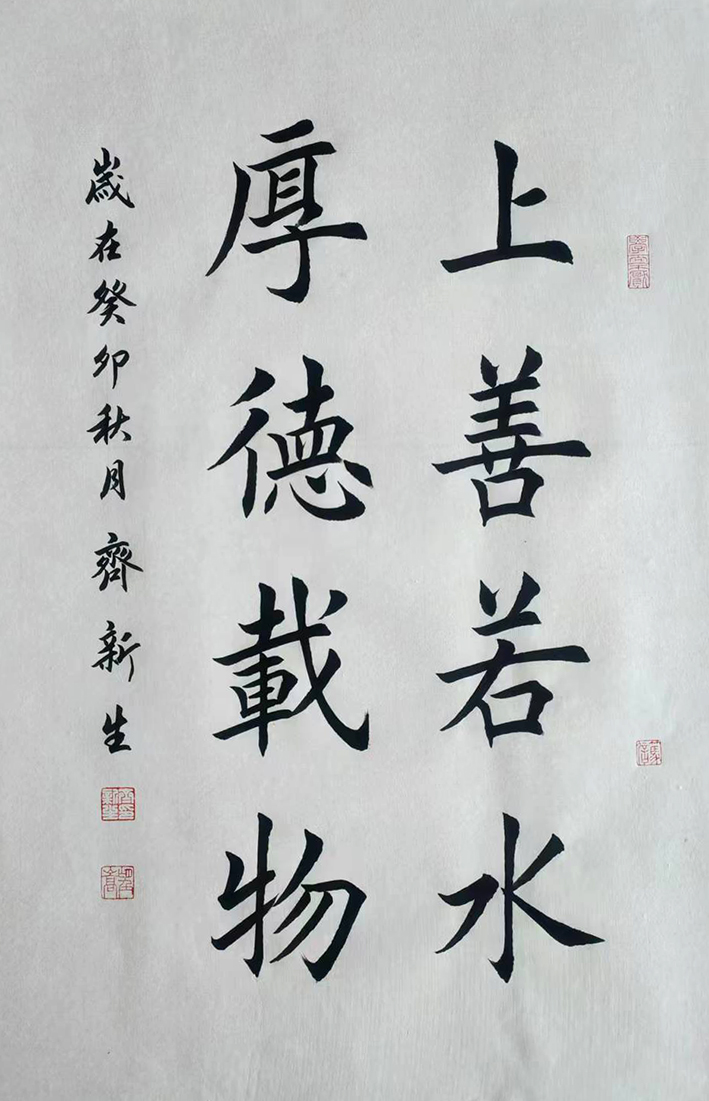 上善若水
厚德載物
歲在癸卯秋月齊新生